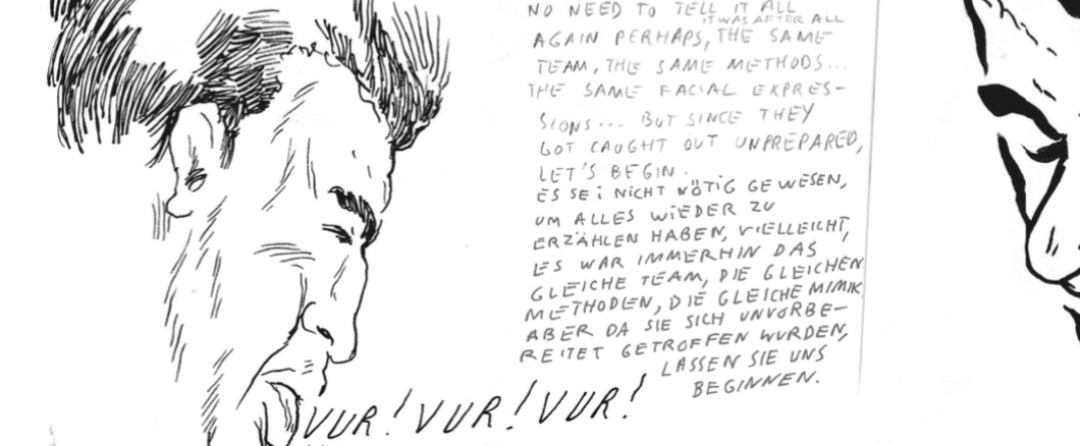 NO NEED TO TELL IT ALL
IT WAS AFTER ALL
AGAIN PERHAPS, THE SAME
TEAM, THE SAME METHODS...
THE SAME FACIAL EXPRES-
SIONS... BUT SINCE THEY
GOT CAUGHT OUT UNPREPARED,
LET'S BEGIN.
ES SEi NiCHT NÖTiG GEWESEN,
UM ALLES WiEDER ZU
ERZÄHLEN HABEN, ViELLEICHT,
ES WAR IMMERHIN DAS
GLEICHE TEAM, DIE GLEICHEN
METHODEN, DIE GLEICHE MIMIK
ABER DA SIE SICH UNVORBE-
REITET GETROFFEN WURDEN,
LASSEN SIE UNS
BEGINNEN.
VUR! VUR! VUR!